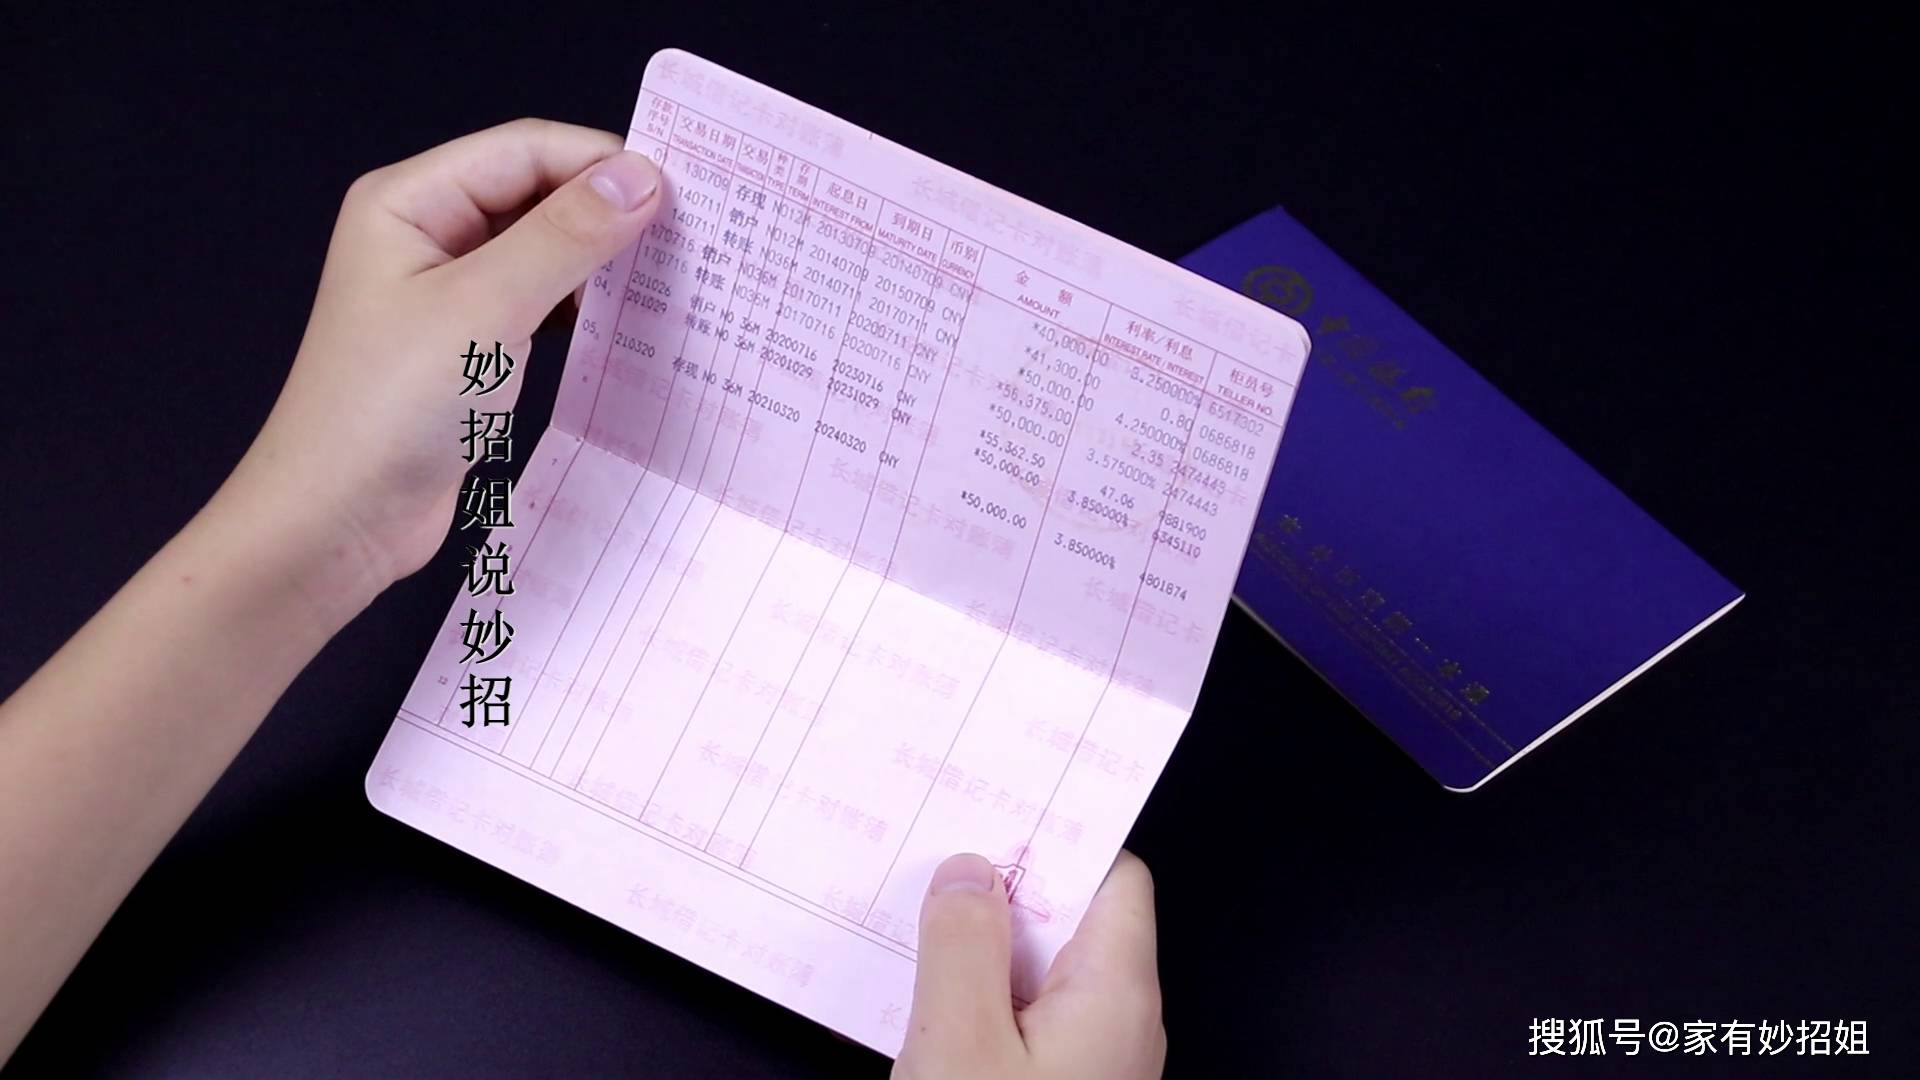 长城借记卡对账簿
存款序号 交易日期 交易 种类 存期 起息日 到期日 币别 金额 利率/利息 柜员号
S/N TRANSACTION DATE TYPE TERM INTEREST FROM MATURITY DATE CURRENCY AMOUNT INTEREST RATE / INTEREST TELLER NO.
01 130709 存现 NO12M 20130709 20140709 CNY *40,000.00 3.250000% 6517302
140711 销户 NO12M 20140709 20150709 CNY *41,300.00 0.80 0686818
140711 转账 NO36M 20140711 20170711 CNY *50,000.00 4.250000% 0686818
170716 销户 NO36M 20170711 20200711 CNY *56,375.00 2.35 2474443
170716 转账 NO36M 20170716 20200716 CNY *50,000.00 3.575000% 2474443
04. 201026 销户 NO 36M 20200716 20230716 CNY *55,362.50 47.06 9881900
201029 转账 NO 36M 20201029 20231029 CNY *50,000.00 3.850000% 6345110
05. 210320 存现 NO 36M 20210320 20240320 CNY *50,000.00 3.850000% 4801874
7
12
中国银行
妙招姐说妙招
搜狐号@家有妙招姐